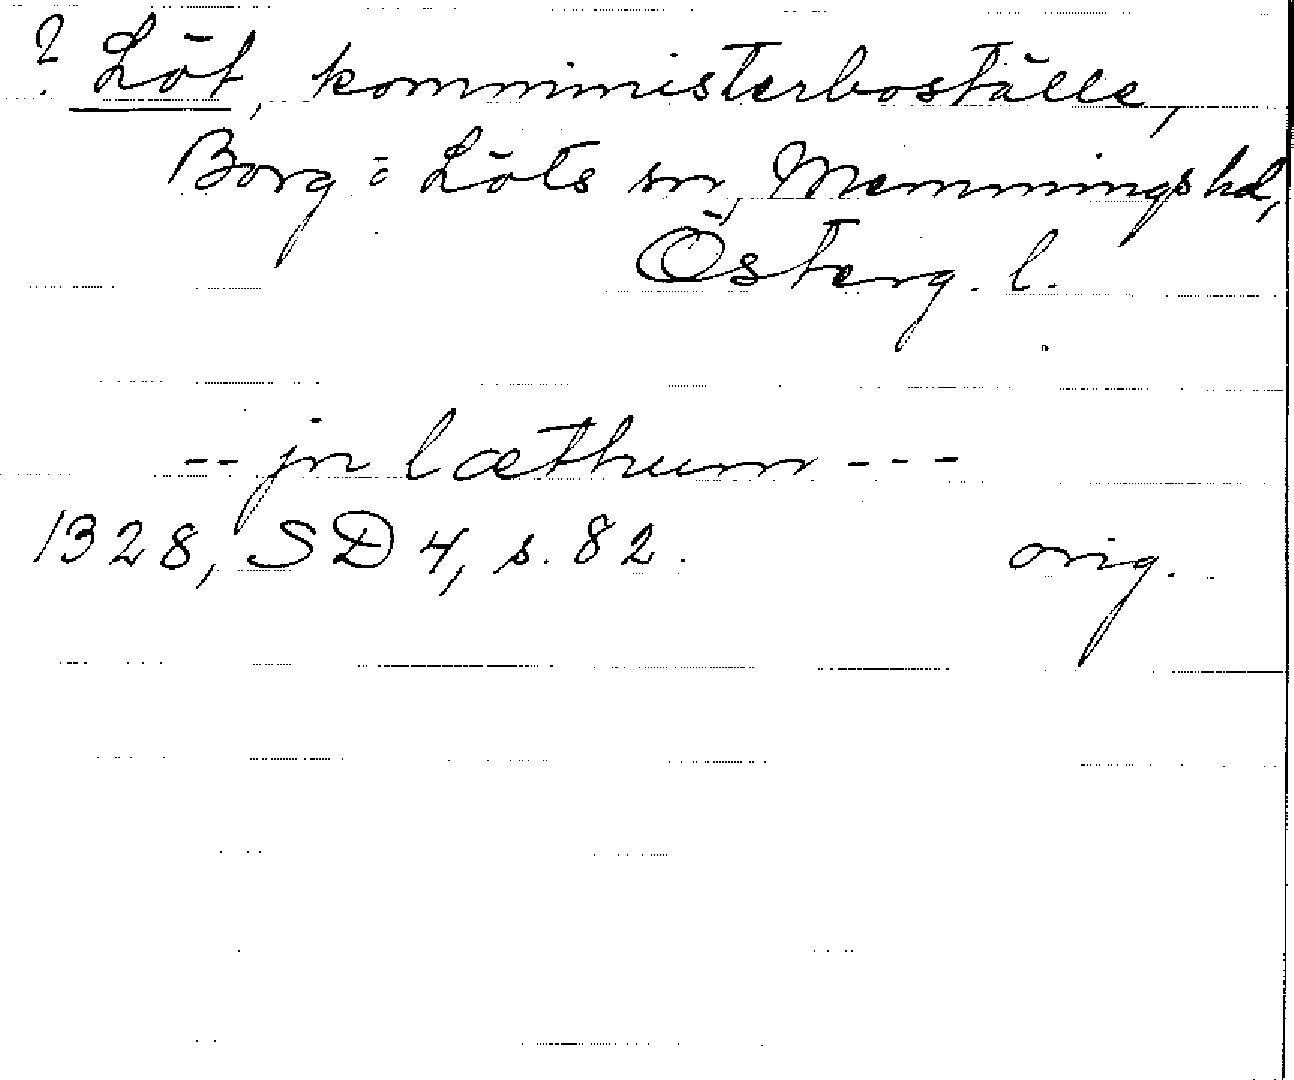 ? Löt, komministerboställe,
Borg o Löts sn, Memmings hd,
Österg. l.
-- jn læthum ---
1328, SD 4, s. 82. orig.